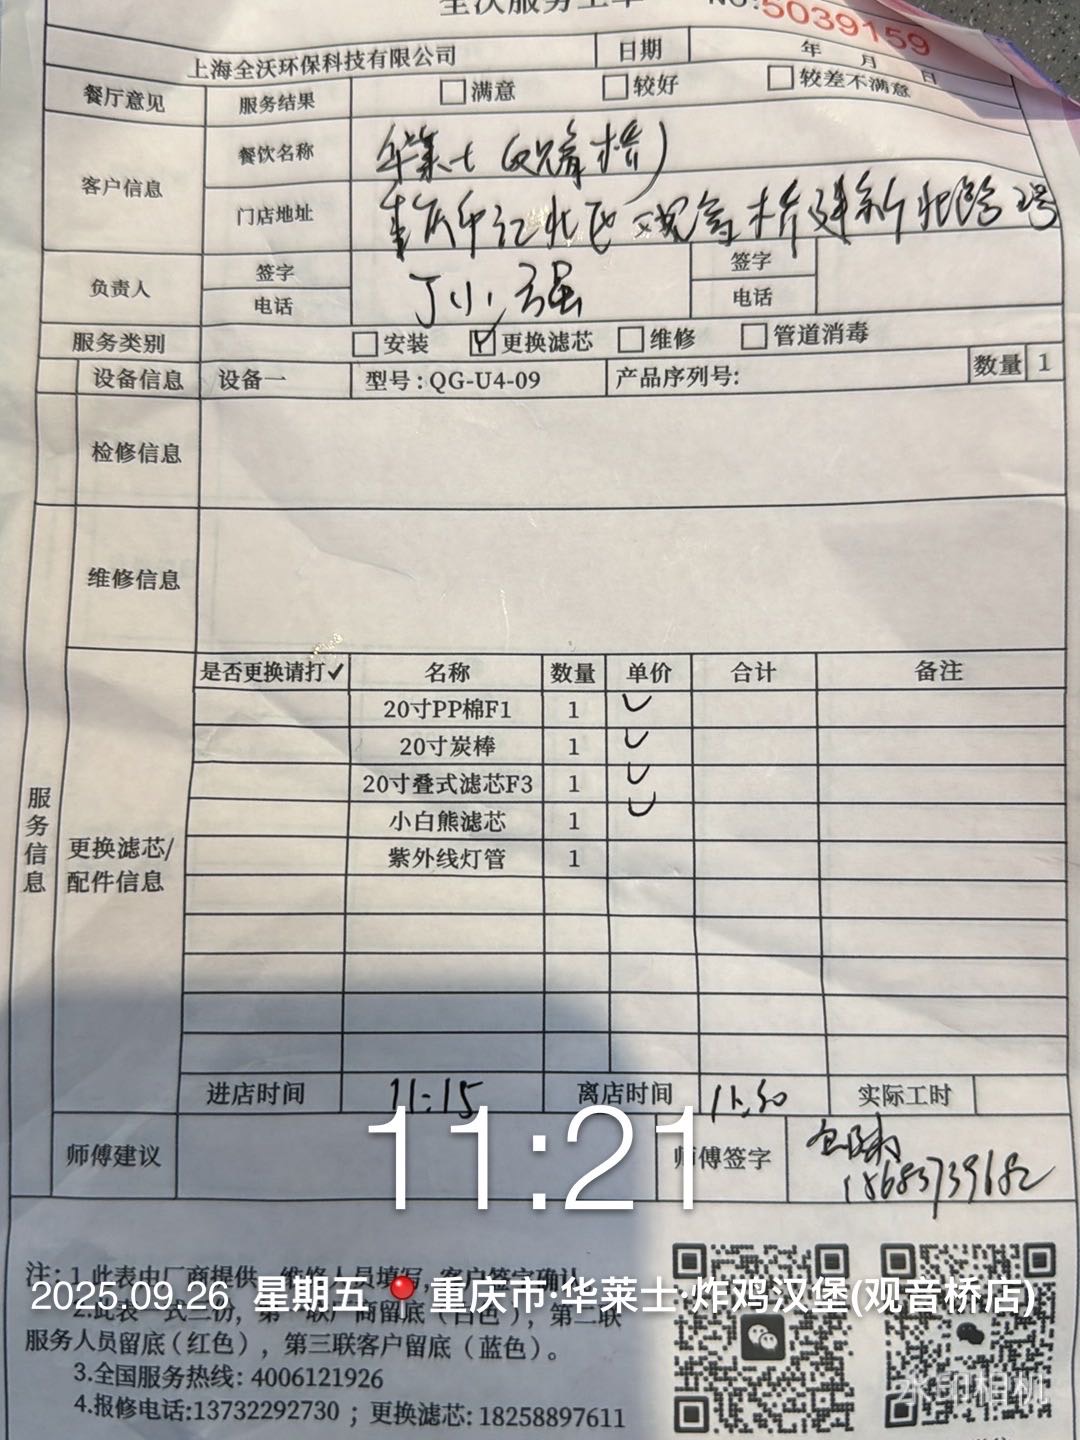 全沃服务工单 NO:5039159
上海全沃环保科技有限公司 日期 年 月 日
餐厅意见 服务结果 满意 较好 较差不满意
客户信息 餐饮名称 华莱士(观音桥)
门店地址 重庆市江北区观音桥建新北路2号
负责人 签字 丁小强 签字
电话 电话
服务类别 安装 更换滤芯 维修 管道消毒
设备信息 设备一 型号:QG-U4-09 产品序列号: 数量 1
检修信息
维修信息
服务信息
更换滤芯/
配件信息
是否更换请打✓ 名称 数量 单价 合计 备注
20寸PP棉F1 1 ✓
20寸炭棒 1 ✓
20寸叠式滤芯F3 1 ✓
小白熊滤芯 1 ✓
紫外线灯管 1
进店时间 11:15 离店时间 11:30 实际工时
师傅建议 师傅签字
18683739682
11:21
注:1.此表由厂商提供,维修人员填写,客户签字确认
2025.09.26 星期五 重庆市·华莱士·炸鸡汉堡(观音桥店)
2.此表一式三份,第一联厂商留底(白色),第二联
服务人员留底(红色),第三联客户留底(蓝色)。
3.全国服务热线:4006121926
4.报修电话:13732292730;更换滤芯:18258897611
水印相机